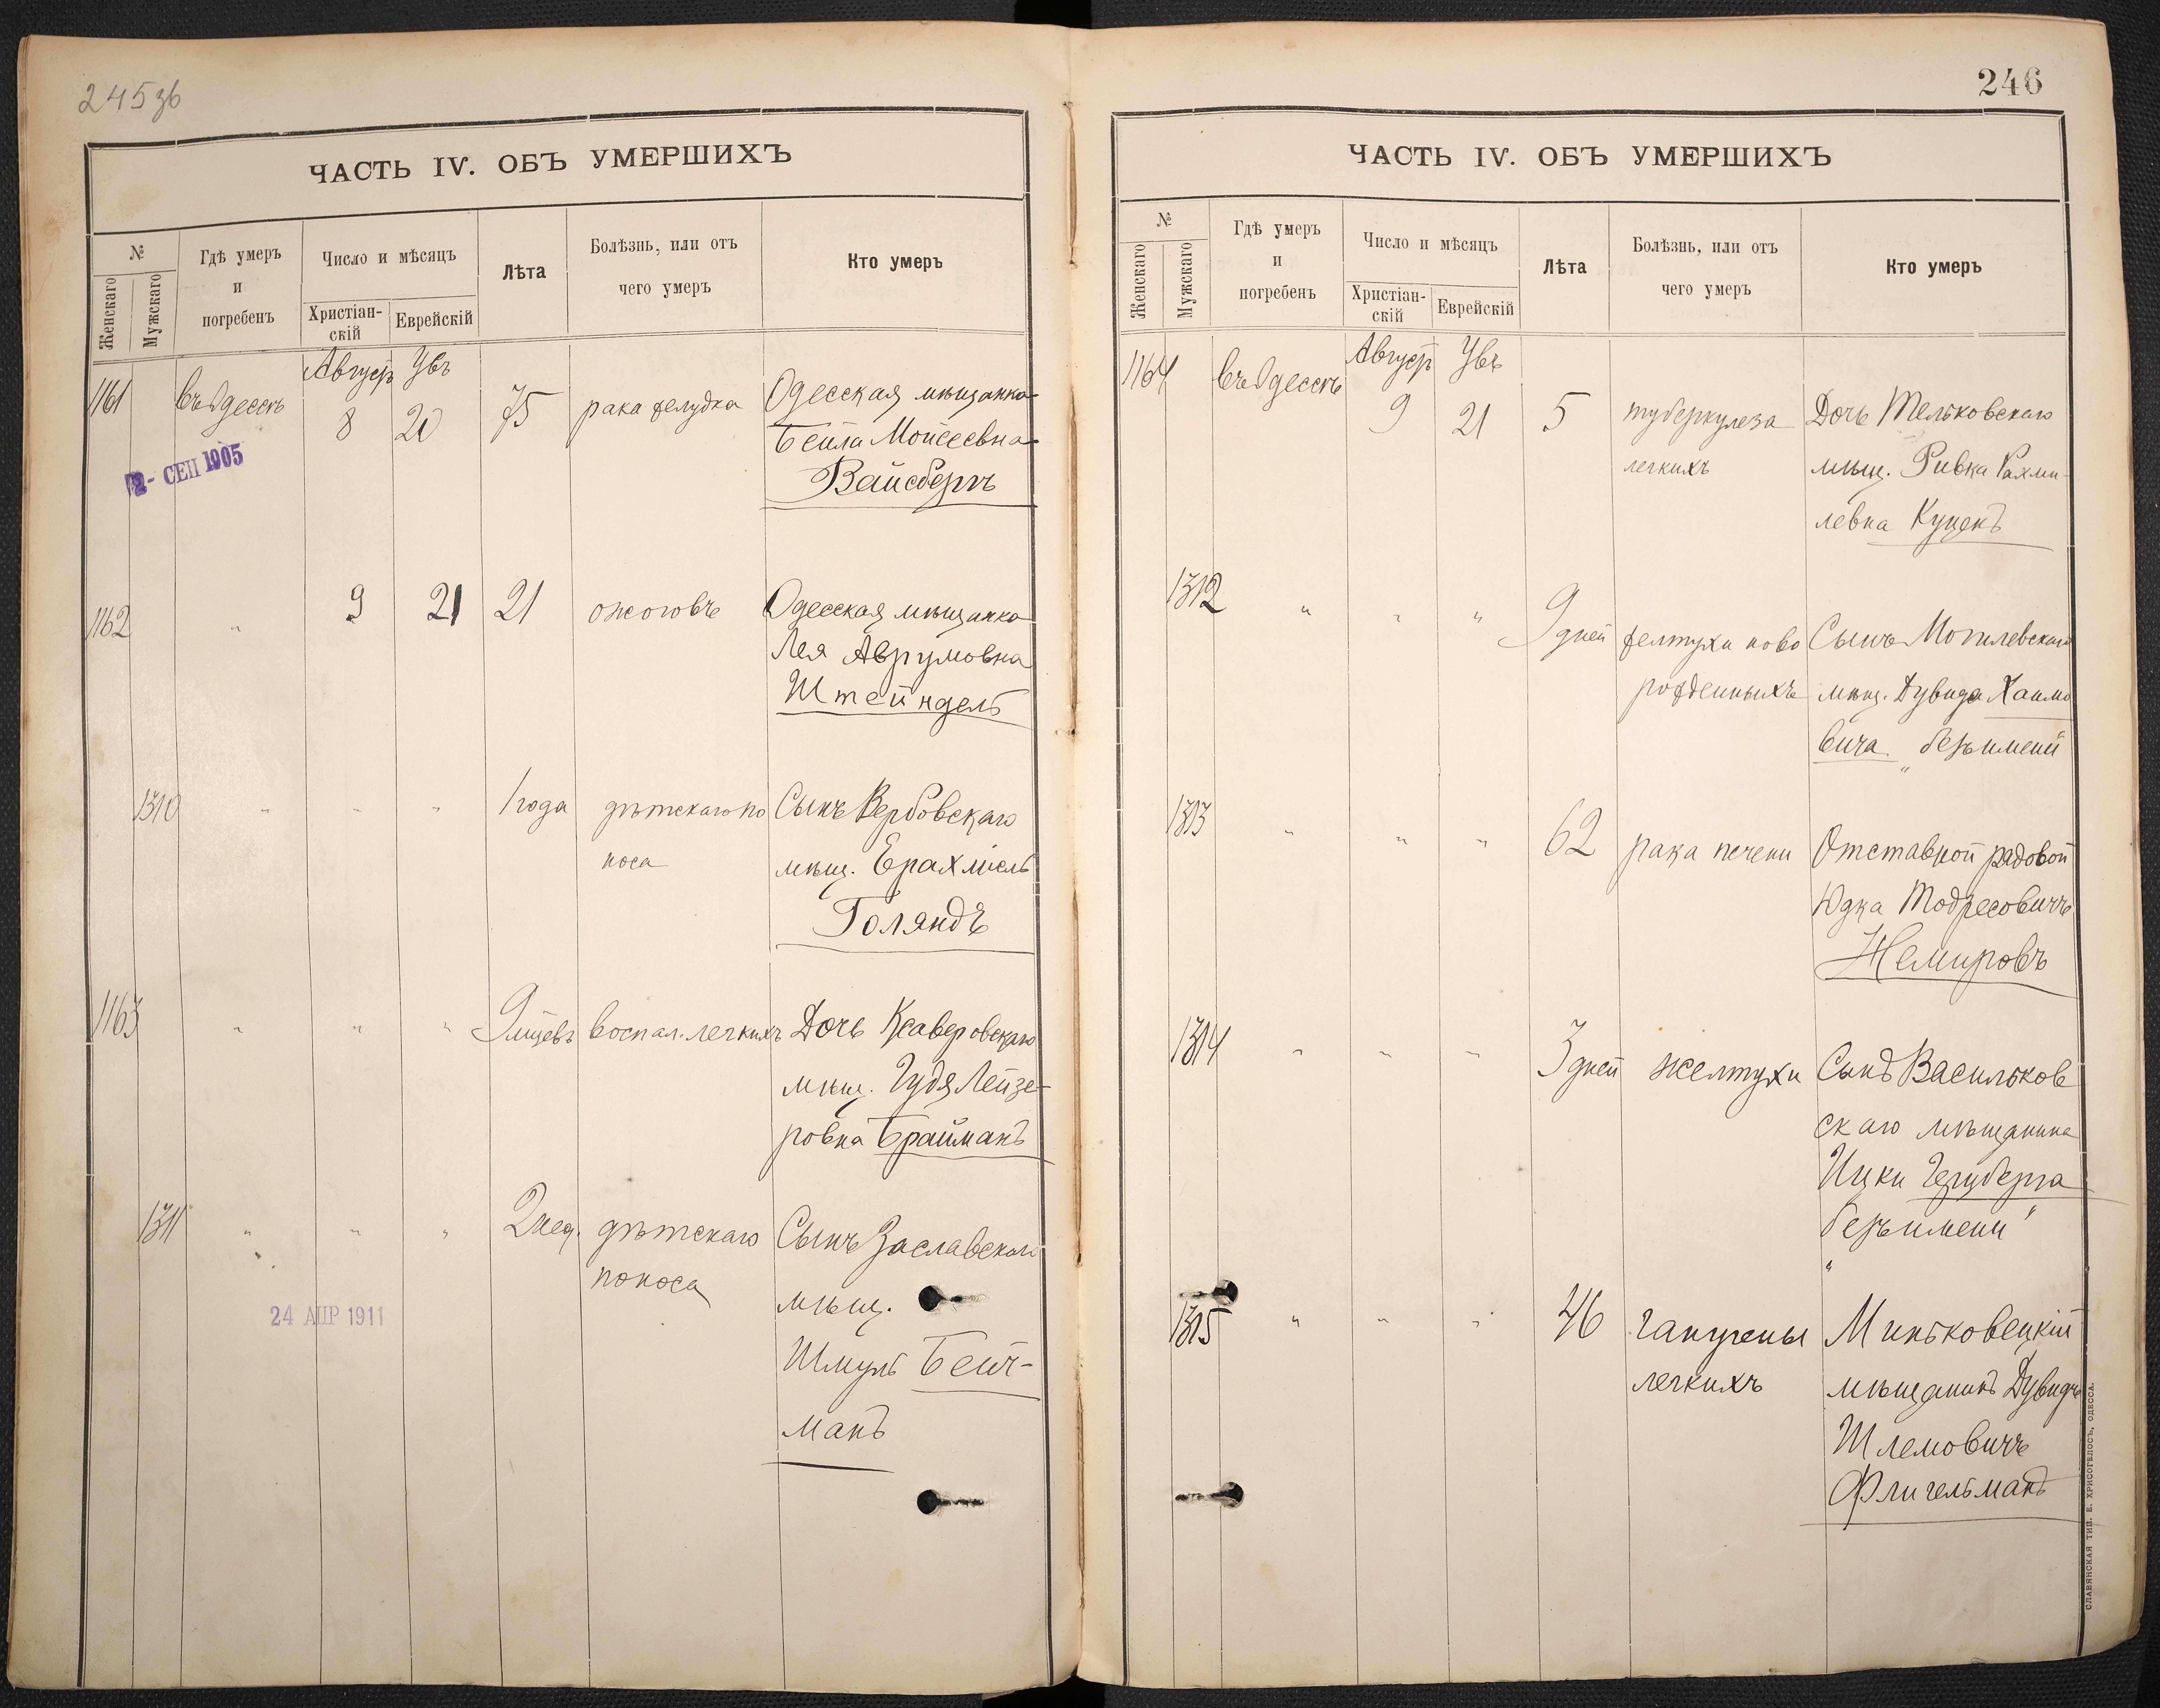 245 об
ЧАСТЬ IV. ОБЪ УМЕРШИХЪ
№
Женскаго
Мужскаго
Гдѣ умеръ
и
погребенъ
Число и мѣсяцъ
Христіан-
скій
Еврейскій
Лѣта
Болѣзнь, или отъ
чего умеръ
Кто умеръ
Август Увъ
1161 въ Одессѣ 8 20 75 рака желудка Одесская мѣщанка
Бейла Мойсеевна
Вайсбергъ
2- СЕП 1905
1162 " 9 21 21 ожоговъ Одесская мѣщанка
Лея Аврумовна
Штейндель
1310 " " " 1 года дѣтскаго по Сынъ Вербовскаго
носа мѣщ. Ерахміель
Голяндъ
1163 " " " 9 мцевъ воспал. легкихъ Дочь Ксаверовскаго
мѣщ. Гудя Лейзе-
ровна Брайманъ
1311 " " " 2 нед. дѣтскаго Сынъ Заславскаго
поноса мѣщ.
Шмуль Бейт-
манъ
24 АПР 1911
246
ЧАСТЬ IV. ОБЪ УМЕРШИХЪ
№
Женскаго
Мужскаго
Гдѣ умеръ
и
погребенъ
Число и мѣсяцъ
Христіан-
скій
Еврейскій
Лѣта
Болѣзнь, или отъ
чего умеръ
Кто умеръ
Август Увъ
1164 въ Одессѣ 9 21 5 туберкулеза Дочь Мельковскаго
легкихъ мѣщ. Ривка Рахми-
левна Куцекъ
1312 " " " 9 дней желтухи ново Сынъ Могилевскаго
рожденныхъ мѣщ. Дувида Хаимо
вича „безъ имени"
1313 " " " 62 рака печени Отставной рядовой
Юдка Тодресовичъ
Немировъ
1314 " " " 3 дней желтухи Сынъ Васильков
скаго мѣщанина
Ицки Герцберга
„безъ имени"
1315 " " " 46 гангрены Миньковецкій
легкихъ мѣщанинъ Дувидъ
Шлемовичъ
Флигельманъ
СЛАВЯНСКАЯ ТИП. Е. ХРИСОГЕЛОСЪ, ОДЕССА.